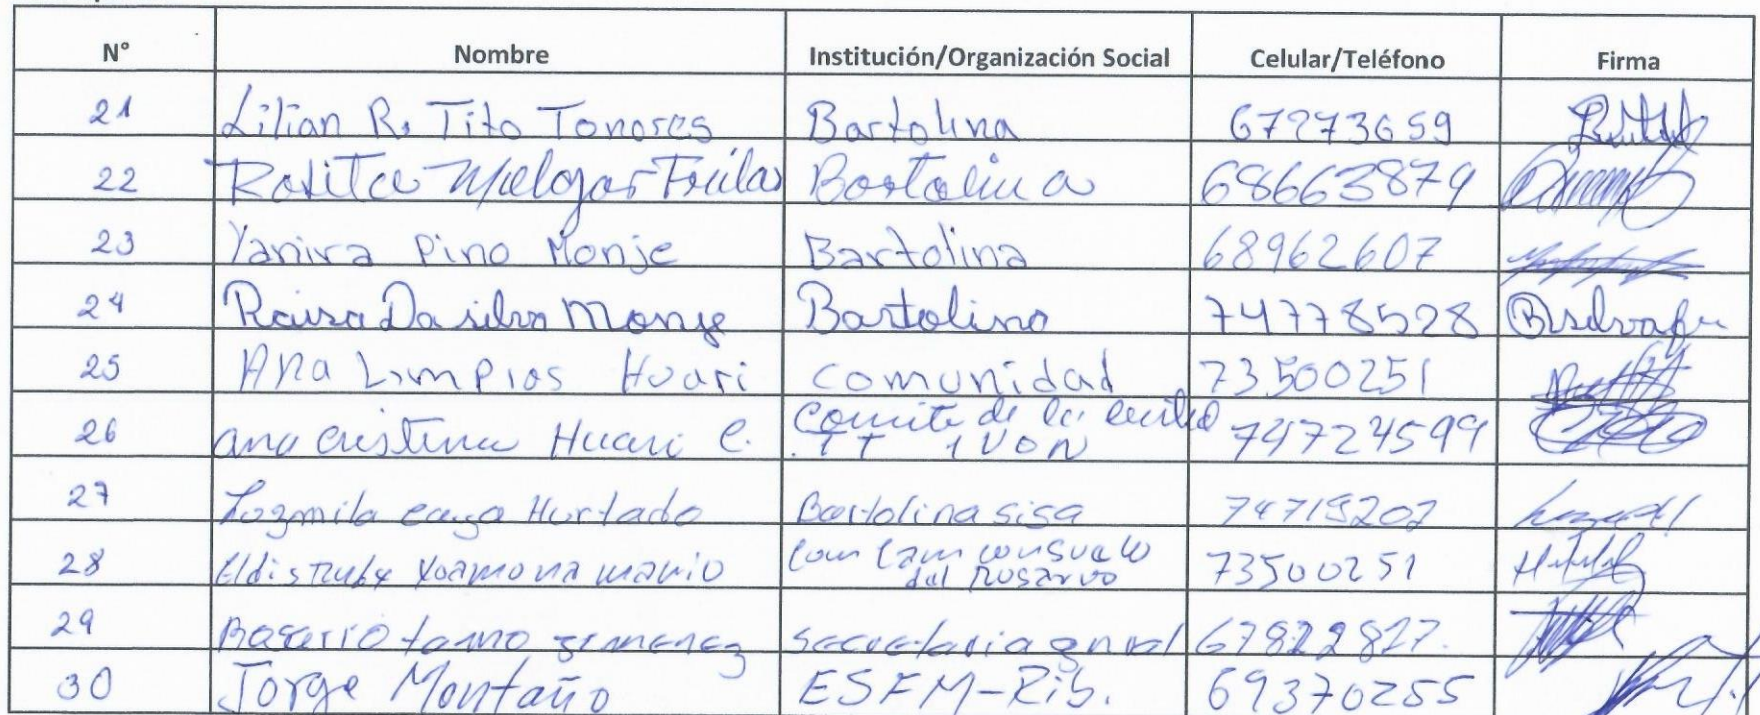 N° Nombre Institución/Organización Social Celular/Teléfono Firma
21 Lilian R. Tito Tonores Bartolina 67273659
22 Rosita Melgar Bartolina 68663879
23 Yanira Pino Monje Bartolina 68962607
24 Raisa Da silva Monje Bartolina 74778528
25 Ana Limpias Huari comunidad 73500251
26 ana cristina Huari C. Comite de la 74724599
27 Lozmila Hurtado Bartolina sisa 74719207
28 mamio Com Cam consuelo 73500251
del Rosario
29 Baserio tamo secretaria 67822827.
30 Jorge Montaño ESFM-Rib. 69370255